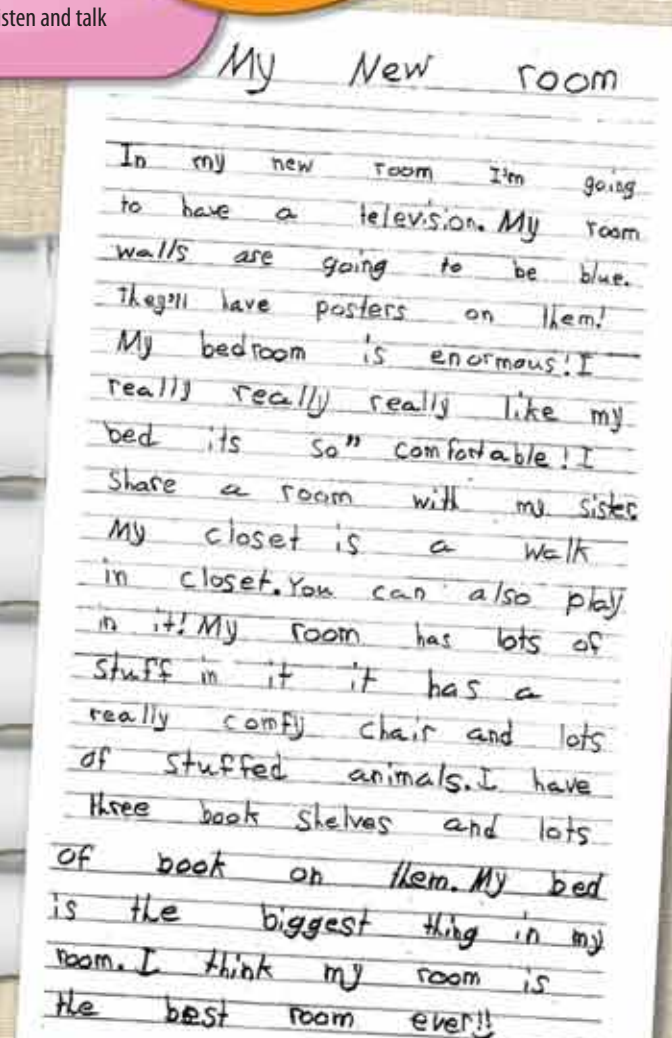 sten and talk
My New room
In my new room I'm going
to have a television. My room
walls are going to be blue.
They'll have posters on them!
My bedroom is enormous! I
really really really like my
bed its so" comfortable! I
Share a room with my sister.
My closet is a walk
in closet. You can also play
in it! My room has lots of
stuff in it it has a
really comfy chair and lots
of stuffed animals. I have
three book shelves and lots
of book on them. My bed
is the biggest thing in my
room. I think my room is
the best room ever!!